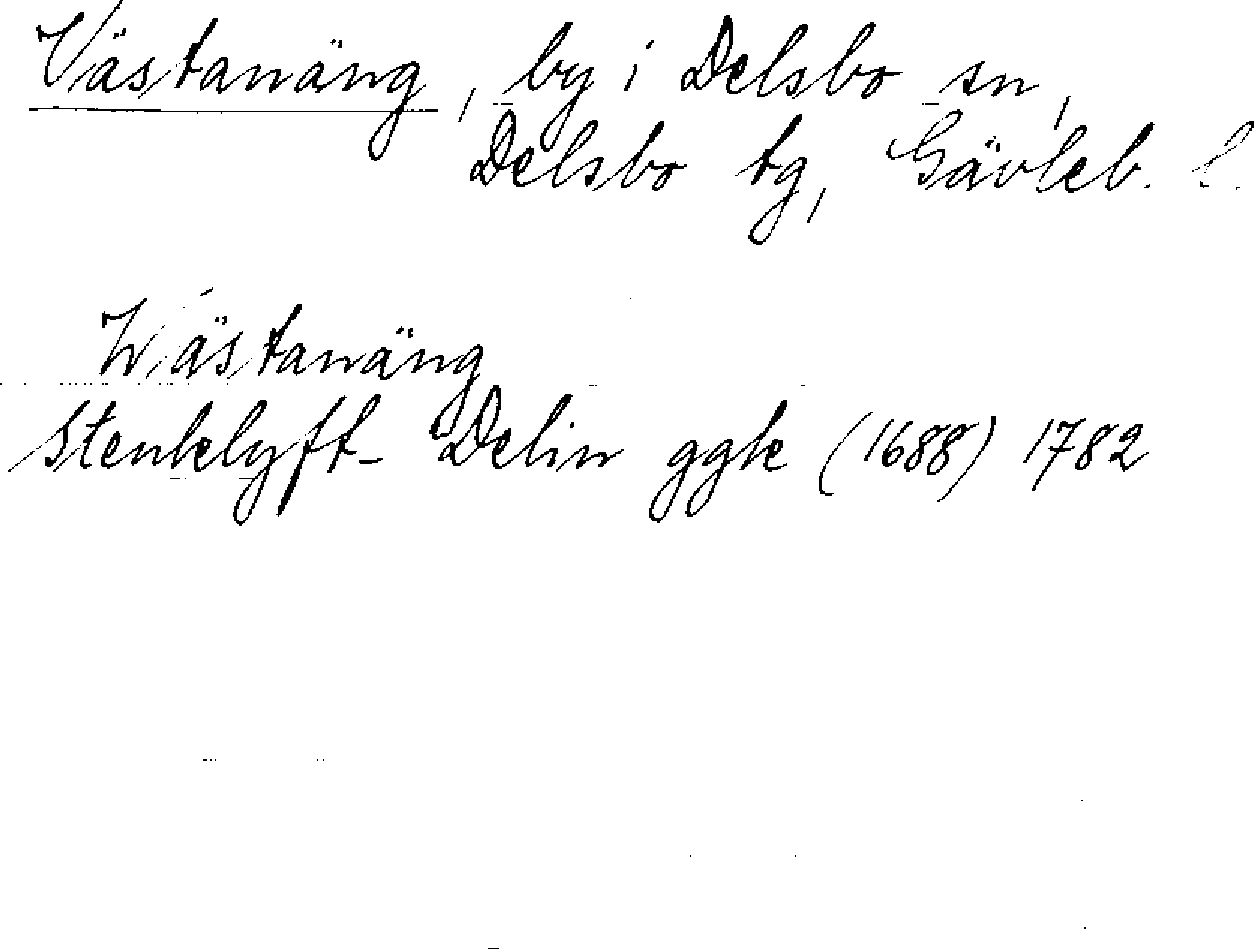 Västanäng, by i Delsbo sn,
Delsbo tg, Gävleb. l.
Wästanäng
Stenklyft- Delin ggk (1688) 1782